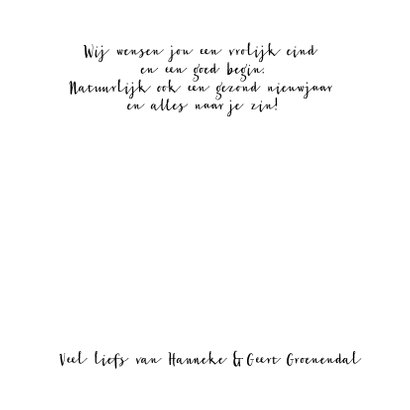 Wij wensen jou een vrolijk eind
en een goed begin.
Natuurlijk ook een gezond nieuwjaar
en alles naar je zin!
Veel liefs van Hanneke & Geert Groenendal